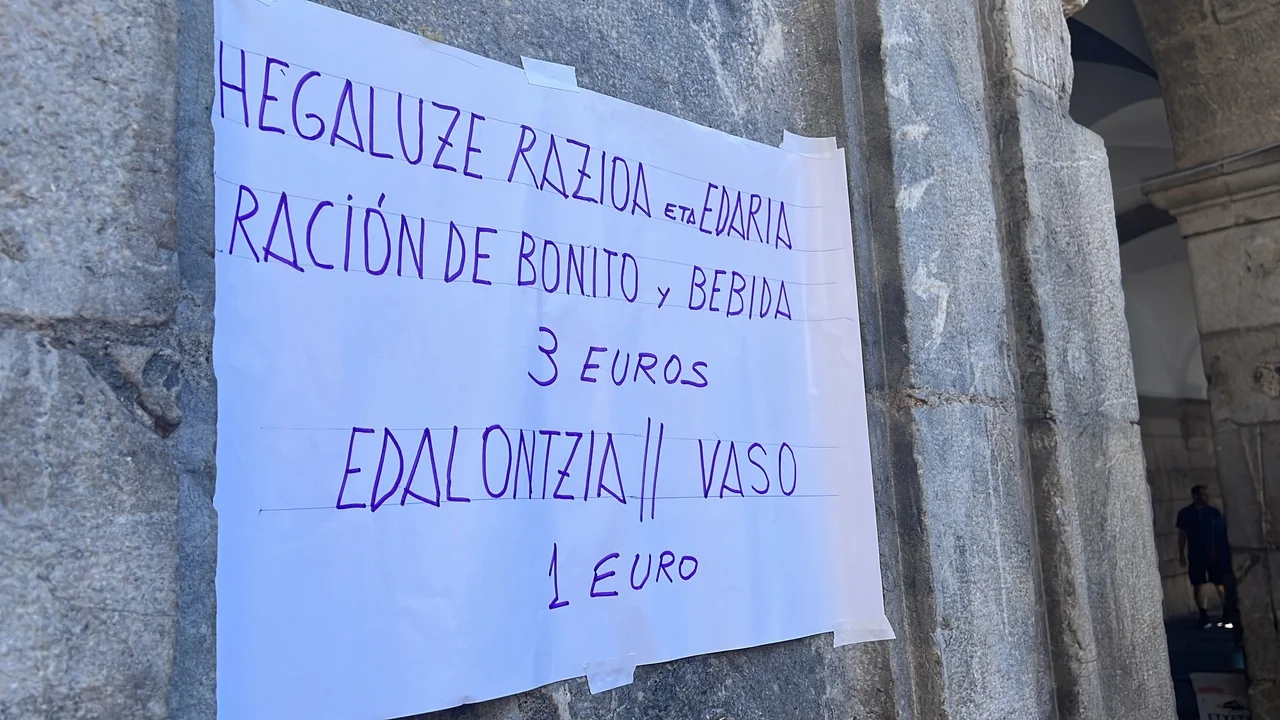 HEGALUZE RAZIOA ETA EDARIA
RACIÓN DE BONITO y BEBIDA
3 EUROS
EDALONTZIA // VASO
1 EURO